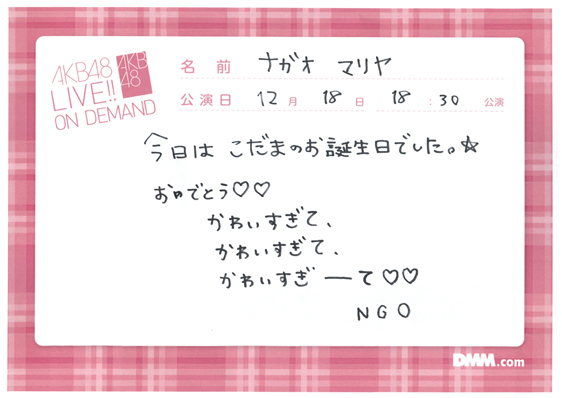 AKB48
LIVE!!
ON DEMAND
AKB
48
名前 ナガオ マリヤ
公演日 12月 18日 18:30 公演
今日は こだまのお誕生日でした。☆
おめでとう♡♡
かわいすぎて、
かわいすぎて、
かわいすぎーて♡♡
NGO
DMM.com